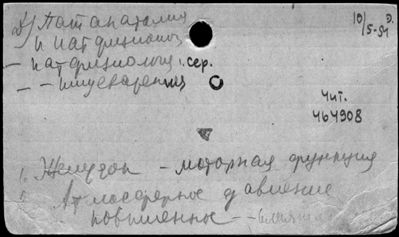 Д) Патанатомия
и патфизиолог
10/5-54 Д.
– патфизиология, сер.
– – пищеварения
Чит.
464908
1. Желудок – моторная функция
2. Атмосферное давление
повышенное – –